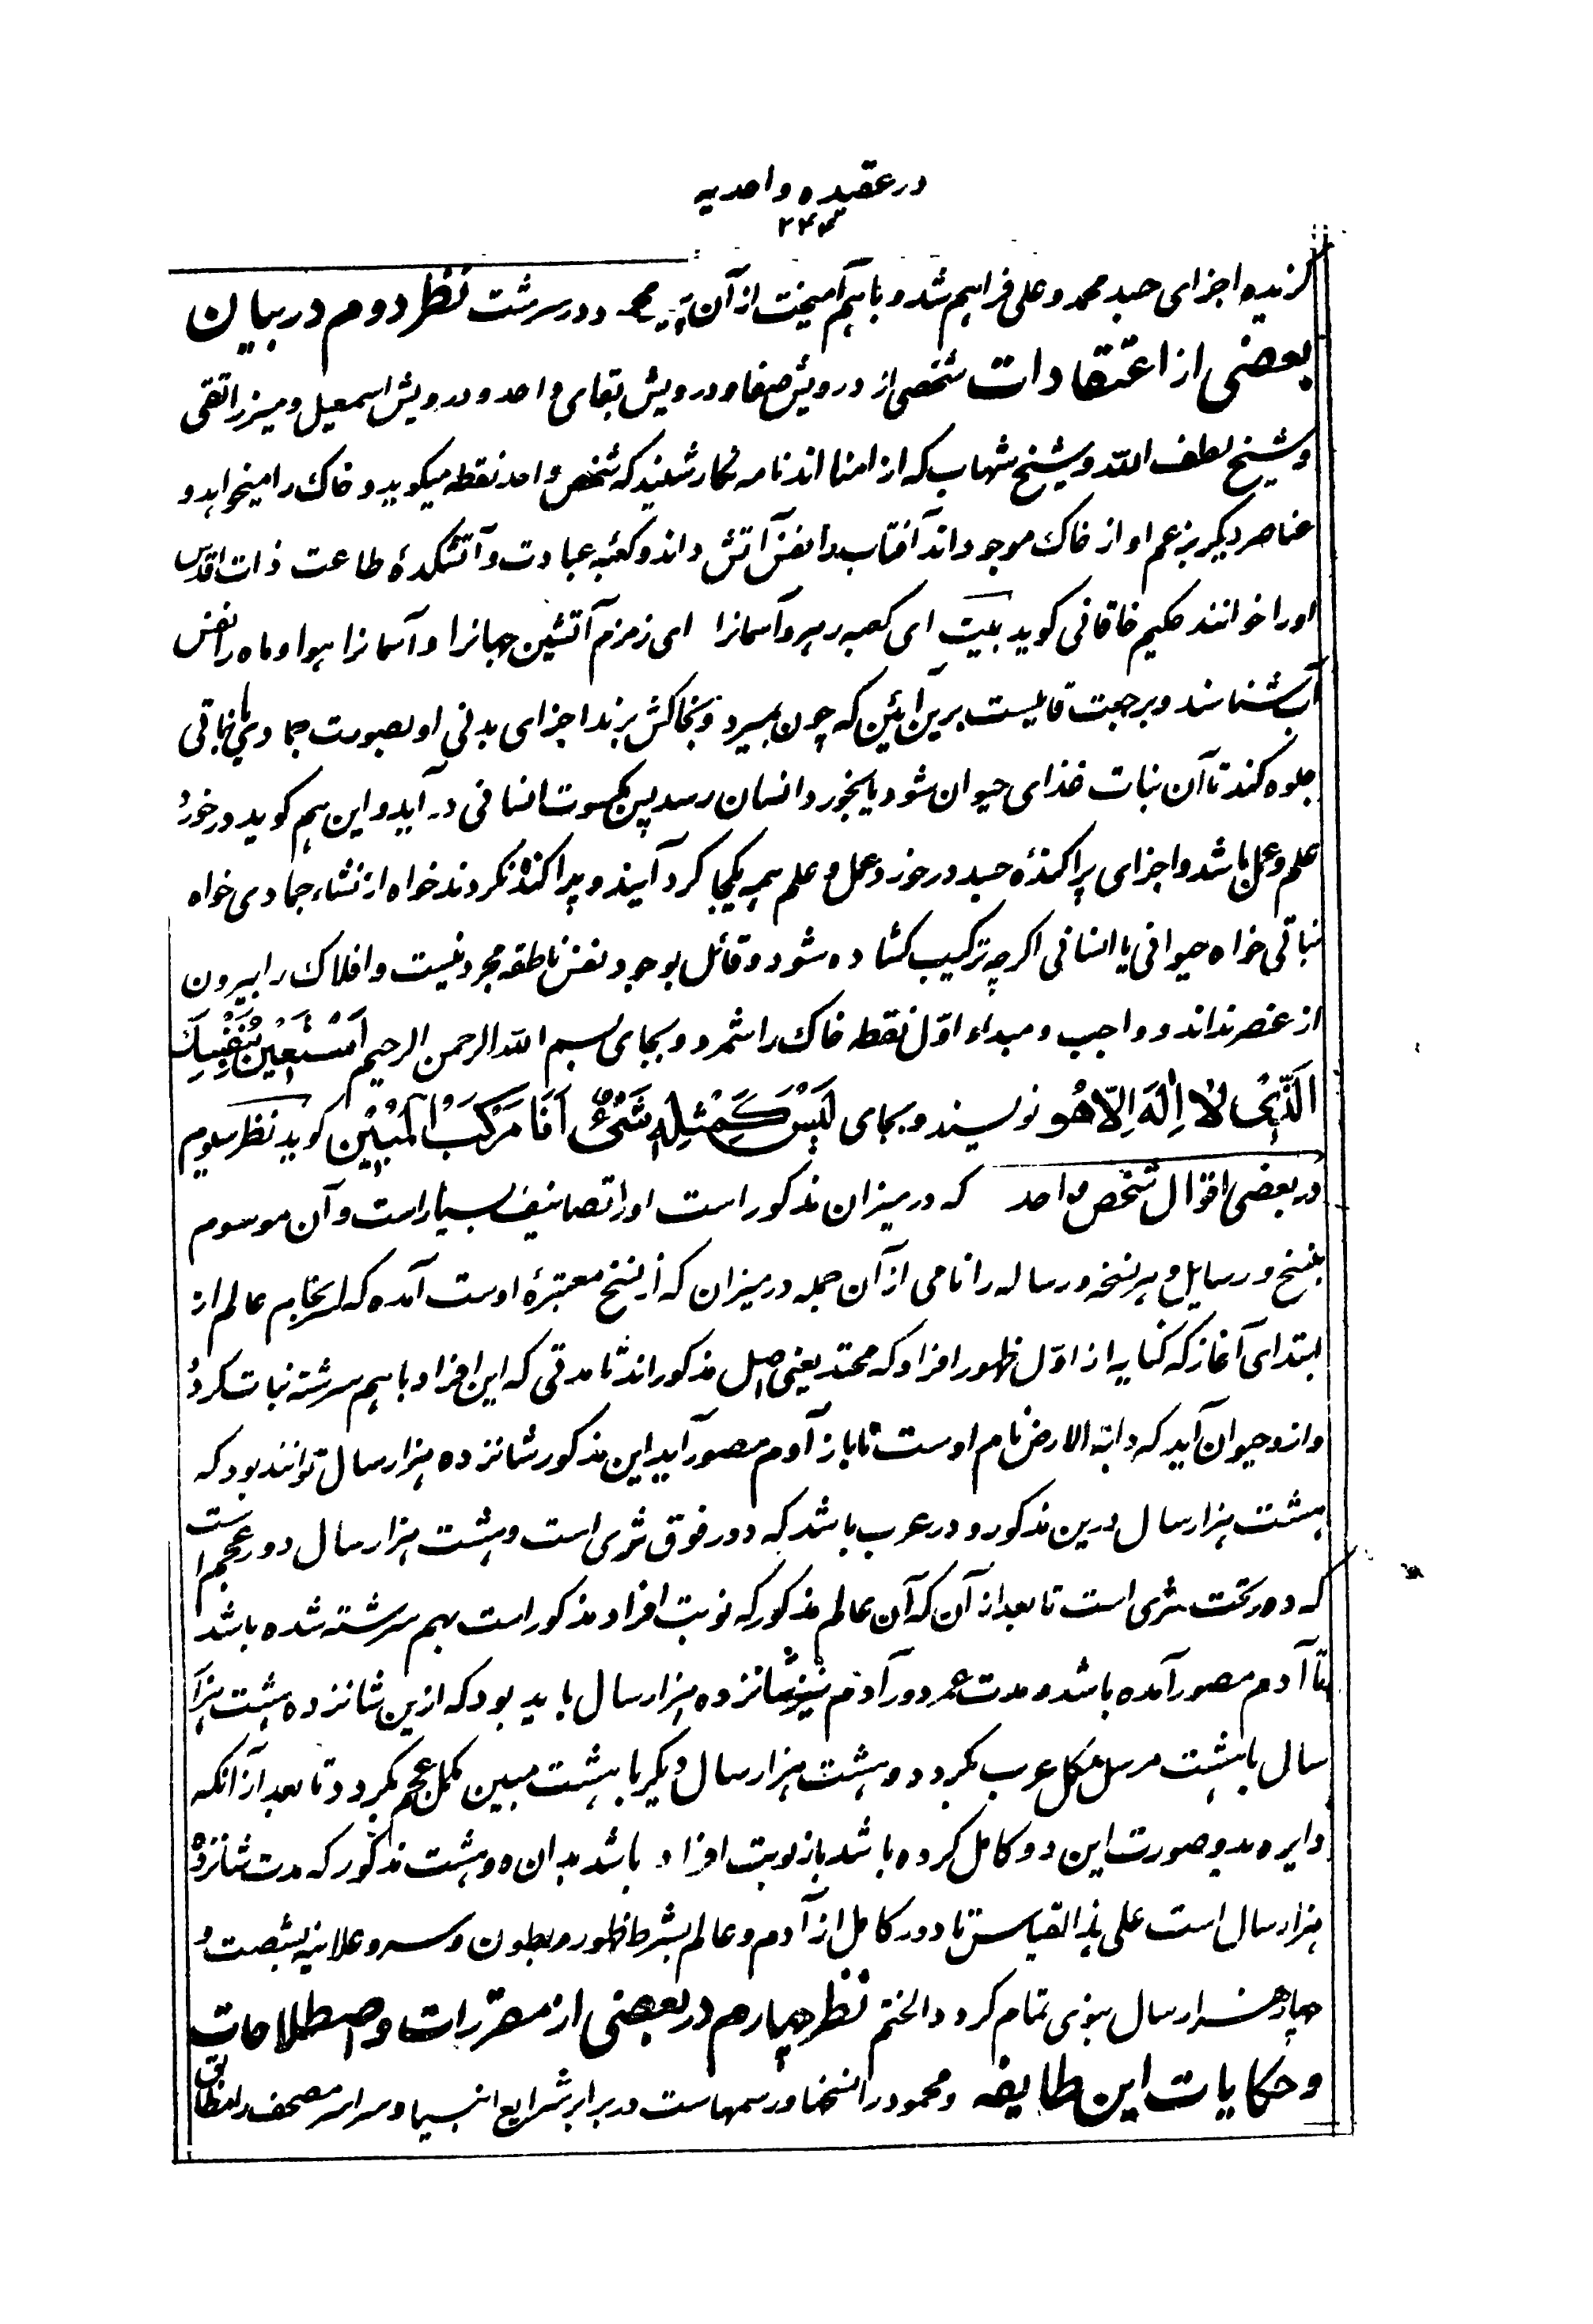 در عقیده واحدیه
۲۴۴
گزیده اجزای جسد محمد و علی فراهم شد و باهم آمیخت از آن محمود در سرشت نظر دوم در بیان
بعضی از اعتقادات شخصی از درویش صفا و درویش بقای واحد و درویش اسمعیل و میرزا تقی
و شیخ لطف الله و شیخ شهاب که از امنا اند نامه نگار شنید که شخص واحد نقطه میگوید و خاک را میخواهد و
عناصر دیگر بزعم او از خاک موجود اند آفتاب را نفس آتش داند و کعبه عبادت و آتشکدهٔ طاعت ذات اقدس
او را خوانند حکیم خاقانی گوید بیت ای کعبه رهرو آسمانرا ای زمزم آتشین جهانرا و آسمانرا هوا و ماه را نفس
آب شناسند و برجعت قایلست برین آئین که چون بمیرد و بخاکش برند اجزای بدنی او بصورت جمادی یا نباتی
جلوه کند تا آن نبات غذای حیوان شود یا بخورد انسان رسد پس بکسوت انسانی در آید و این هم گوید در خورد
علم و عمل باشد و اجزای پراکندهٔ جسد در خورد عمل و علم همه یکجا گرد آیند و پراکنده نگردند خواه از نشاء جمادی خواه
نباتی خواه حیوانی یا انسانی اگرچه ترکیب گشاده شود و قائل بوجود نفس ناطقه مجرد نیست و افلاک را بیرون
از عنصر نداند و واجب و مبداء اوّل نقطه خاک را شمرد و بجای بسم الله الرحمن الرحیم اَسْتَعِیْنُ بِنَفْسِکَ
اَلَّذِیْ لَا اِلٰهَ اِلَّا هُو نویسند و بجای لَیْسَ کَمِثْلِهِ شَیْءٌ اَنَا مَرْکَبُ الْمُبِیْن گوید نظر سوم
در بعضی اقوال شخص واحد که در میزان مذکور است او را تصانیف بسیار است و آن موسوم
بنسخ و رسایل و هر نسخه و رساله را نامی از آن جمله در میزان که از نسخ معتبرهٔ اوست آمده که عالم از
ابتدای آغاز که کنایه از اوّل ظهور افراد که محتد یعنی اصل مذکور اند تا مدتی که این افراد باهم سرشته نبات گردد
و ازو حیوان آید که دابة الارض نام اوست تا باز آدم مصور آید این مذکور شانزده هزار سال توانند بود که
هشت هزار سال درین مذکور و در عرب باشد که دور فوق ثری است و هشت هزار سال دور عجم است
که دور تحت ثری است تا بعد از آن که آن عالم مذکور که نوبت افراد مذکور است بهم سرشته شده باشد
تا آدم مصور آمده باشد و مدت عمر دور آدم نیز شانزده هزار سال باید بود که ازین شانزده هشت هزار
سال با هشت مرسل مکمل عرب بگردد و هشت هزار سال دیگر با هشت مبین مکمل عجم بگردد تا بعد از آنکه
دایره بدو صورت این دو کامل کرده باشد باز نوبت افراد باشد بدان دو هشت مذکور که مدت شانزده
هزار سال است علی هذا القیاس تا دور کامل از آدم و عالم بشرط ظهور و بطون و سر و علانیه بشصت و
چهار هزار سال تمام گردد الختم نظر چهارم در بعضی از مقررات و اصطلاحات
و حکایات این طایفه و محمود را نسخها و رسمهاست در برابر شرایع انبیا و سراسر مصحف را مطابق